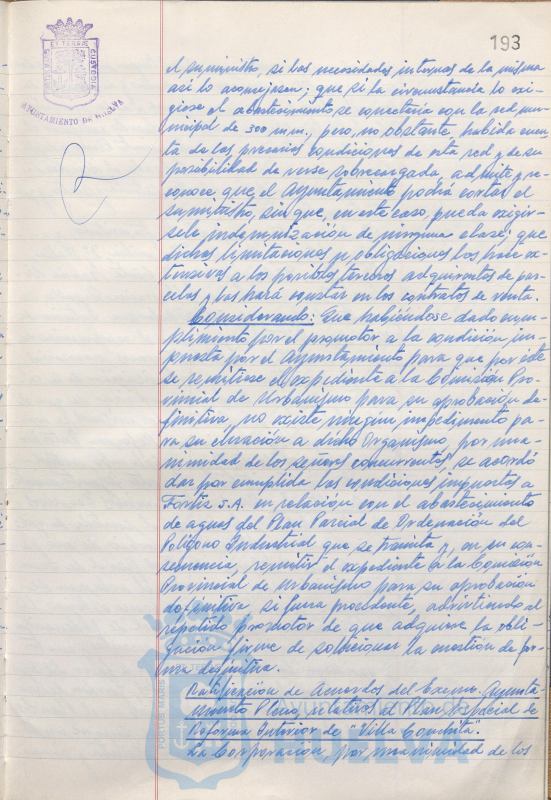 193
PORTUS MARIS ET TERRAE CUSTODIA
AYUNTAMIENTO DE HUELVA
el suministro, si las necesidades internas de la misma
así lo aconsejasen; que si la circunstancia lo exi-
giese el abastecimiento se conectaría con la red mu-
nicipal de 300 m.m., pero, no obstante, habida cuen-
ta de las precarias condiciones de esta red y de su
posibilidad de verse sobrecargada, admite y re-
conoce que el Ayuntamiento podrá cortar el
suministro, sin que, en este caso, pueda exigir-
sele indemnización de ninguna clase; que
dichas limitaciones y obligaciones las hace ex-
tensivas a los posibles terceros adquirentes de par-
celas y las hará constar en los contratos de venta.
Considerando: Que habiéndose dado cum-
plimiento por el promotor a la condición im-
puesta por el Ayuntamiento para que por éste
se remitiese el expediente a la Comisión Pro-
vincial de Urbanismo para su aprobación de-
finitiva, no existe ningún impedimento pa-
ra su elevación a dicho Organismo, por una-
nimidad de los señores concurrentes, se acordó
dar por cumplida las condiciones impuestas a
Fortis S.A. en relación con el abastecimiento
de aguas del Plan Parcial de Ordenación del
Polígono Industrial que se tramita y, en su con-
secuencia, remitir el expediente a la Comisión
Provincial de Urbanismo para su aprobación
definitiva, si fuera procedente, advirtiendo al
repetido promotor de que adquiere la obli-
gación firme de solucionar la cuestión de for-
ma definitiva.
Ratificación de Acuerdos del Excmo. Ayunta-
miento Pleno, relativos al Plan Especial de
Reforma Interior de "Villa Conchita".
La Corporación, por unanimidad de los
PORTUS MARIS
Ayuntamiento de
HUELVA